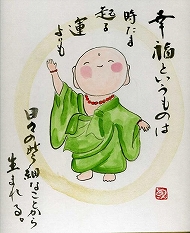 幸福というものは
時たま
起る
運
よりも
日々の些細なことから
生まれる。